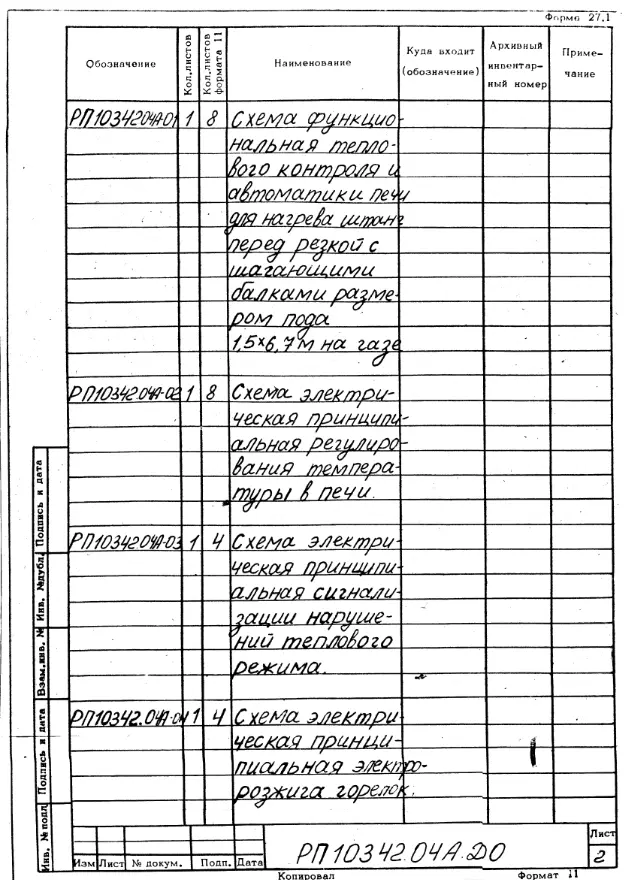 Форма 27.1
Обозначение
Кол.листов
Кол.листов формата 11
Наименование
Куда входит (обозначение)
Архивный инвентар-ный номер
Приме-чание
РП10342.04А-01 1 8 Схема функцио-
нальная тепло-
вого контроля и
автоматики печи
для нагрева штанг
перед резкой с
шагающими
балками разме-
ром пода
1,5×6,7м на газе
РП10342.04А-02 1 8 Схема электри-
ческая принципи-
альная регулиро-
вания темпера-
туры в печи.
РП10342.04А-03 1 4 Схема электри-
ческая принципи-
альная сигнали-
зации наруше-
ний теплового
режима.
РП10342.04А-04 1 4 Схема электри-
ческая принци-
пиальная электро-
розжига горелок.
Подпись и дата
Инв. №дубл.
Взам.инв. №
Подпись и дата
Инв. №подл
Изм Лист № докум. Подп. Дата
РП10342.04А.ДО
Лист
2
Копировал Формат 11